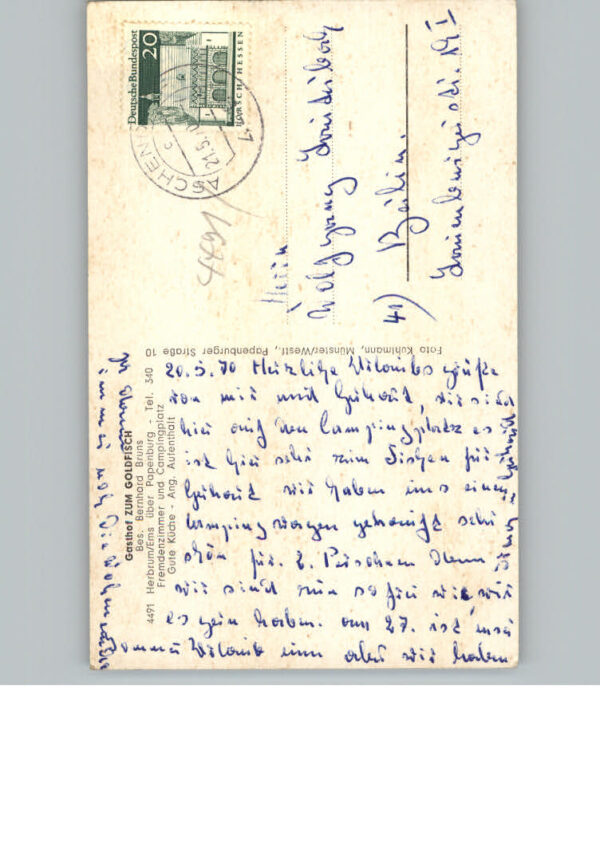 Gasthof ZUM GOLDFISCH
Bes. Bernhard Bruns
4491 Herbrum/Ems über Papenburg - Tel. 340
Fremdenzimmer und Campingplatz
Gute Küche - Ang. Aufenthalt
Foto Kuhlmann, Münster/Westf., Papenburger Straße 10
20.5.70 Herzliche Urlaubsgrüße
von mir und Gerhard, wir sind
hier auf den Campingplatz es
ist hier sehr zum Fischen für
Gerhard wir haben uns einen
Campingwagen gekauft sehr
schön für 2 Personen denn
wir sind nun so frei wie wir
es gern haben. am 27. ist unser
Urlaub um aber wir haben
immer noch die
Herrn
Wolfgang
41) Berlin.
4491
Deutsche Bundespost
20
LORSCH/HESSEN
ASCHEN
21.5.70
1
c